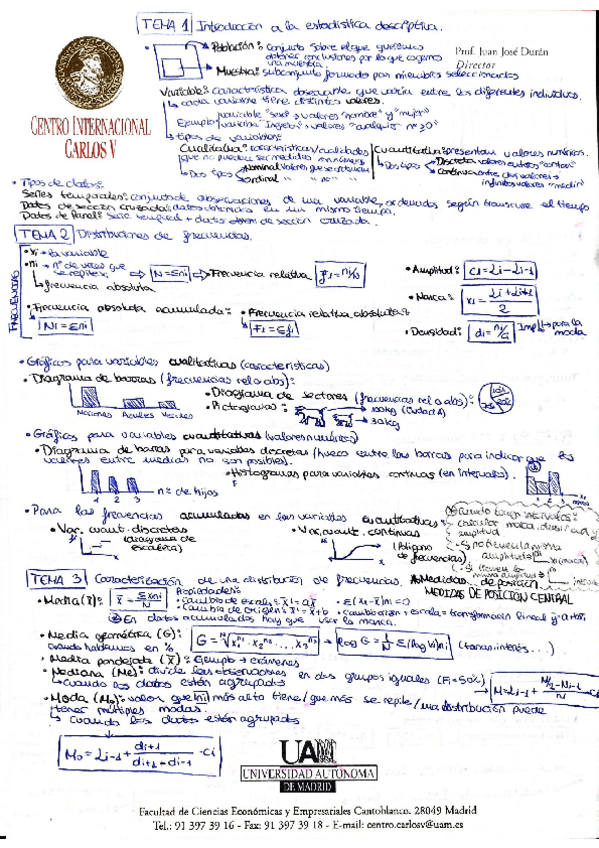 TEMA 1 Introducción a la estadística descriptiva.
• Población: conjunto sobre el que queremos
obtener conclusiones por lo que cogemos
una muestra.
Prof. Juan José Durán
Director
• Muestra: subconjunto formado por miembros seleccionados
CENTRO INTERNACIONAL
CARLOS V
Variable: característica observante que varía entre los diferentes individuos.
cada variable tiene distintos valores.
Ejemplo variable "sexo" → valores "hombre" y "mujer"
variable "ingresos" → valores "cualquier nº ≥0"
tipos de variables:
Cualitativa: características/cualidades
que no pueden ser medidas con números
Dos tipos Nominal
Ordinal
cuantitativa: presentan valores numéricos.
Dos tipos Discreta
Continua
infinitos valores "medir"
• Tipos de datos:
Series temporales: conjunto de observaciones de una variable, ordenado según transcurre el tiempo
Datos de sección cruzada: datos obtenidos en un mismo tiempo.
Datos de Panel: serie temporal + datos de sección cruzada.
TEMA 2 Distribuciones de frecuencias.
FRECUENCIAS
• xi → la variable
• ni → nº de veces que
se repite xi
frecuencia absoluta
N=Σni → Frecuencia relativa fi=ni/N
• Amplitud: Ci=Li-Li-1
• Marca: xi = Li+Li-1 / 2
• Frecuencia absoluta acumulada:
Ni=Σni
• Frecuencia relativa absoluta:
Fi=Σfi
• Densidad: di=ni/Ci Imp → para la
moda
• Gráficos para variables cualitativas (características)
• Diagrama de barras (frecuencias rel o abs):
Marrones Azules Verdes
• Diagrama de sectores (frecuencias rel o abs):
• Pictogramas: 100kg (Ciudad A)
30kg
• Gráficos para variables cuantitativas (valores numéricos)
• Diagrama de barras para variables discretas (hueco entre las barras para indicar que
valores entre medias no son posibles).
1 2 3 nº de hijos
• Histogramas para variables continuas (en intervalos).
• Para las frecuencias acumuladas en las variables cuantitativas:
• Var. cuant. discretas
(diagrama de
escalera)
• Var. cuant. continuas
(Polígono
de frecuencias)
Cuando tengo intervalos:
calcular marca, densidad y
amplitud
- Si no tienen la misma
amplitud
- Si tienen la
misma amplitud
TEMA 3 Caracterización de una distribución de frecuencias.
• Medidas de posición
MEDIDAS DE POSICIÓN CENTRAL
• Media (x̄): x̄ = Σxini / N
Propiedades:
• cambio de escala: x̄' = ax̄
• cambio de origen: x̄' = x̄+b
• Σ(xi-x̄)ni=0
• cambio origen + escala = transformación lineal
En datos acumulados hay que usar la marca.
• Media geométrica (G):
cuando hablamos en %
G = ᴺ√x1ⁿ¹ · x2ⁿ² ... xsⁿˢ → log G = 1/N Σ(log xi)ni (tanas interés...)
• Media ponderada (x̄): Ejemplo → exámenes
• Mediana (Me): divide las observaciones en dos grupos iguales (Fi=50%)
cuando los datos están agrupados
• Moda (Mo): valor que ni más alta tiene / que más se repite / una distribución puede
tener múltiples modas
cuando los datos están agrupados
Mo = Li-1 + di+1 / di+1 + di-1 · Ci
UAM
UNIVERSIDAD AUTONOMA
DE MADRID
Facultad de Ciencias Económicas y Empresariales Cantoblanco. 28049 Madrid
Tel.: 91 397 39 16 - Fax: 91 397 39 18 - E-mail: centro.carlosv@uam.es